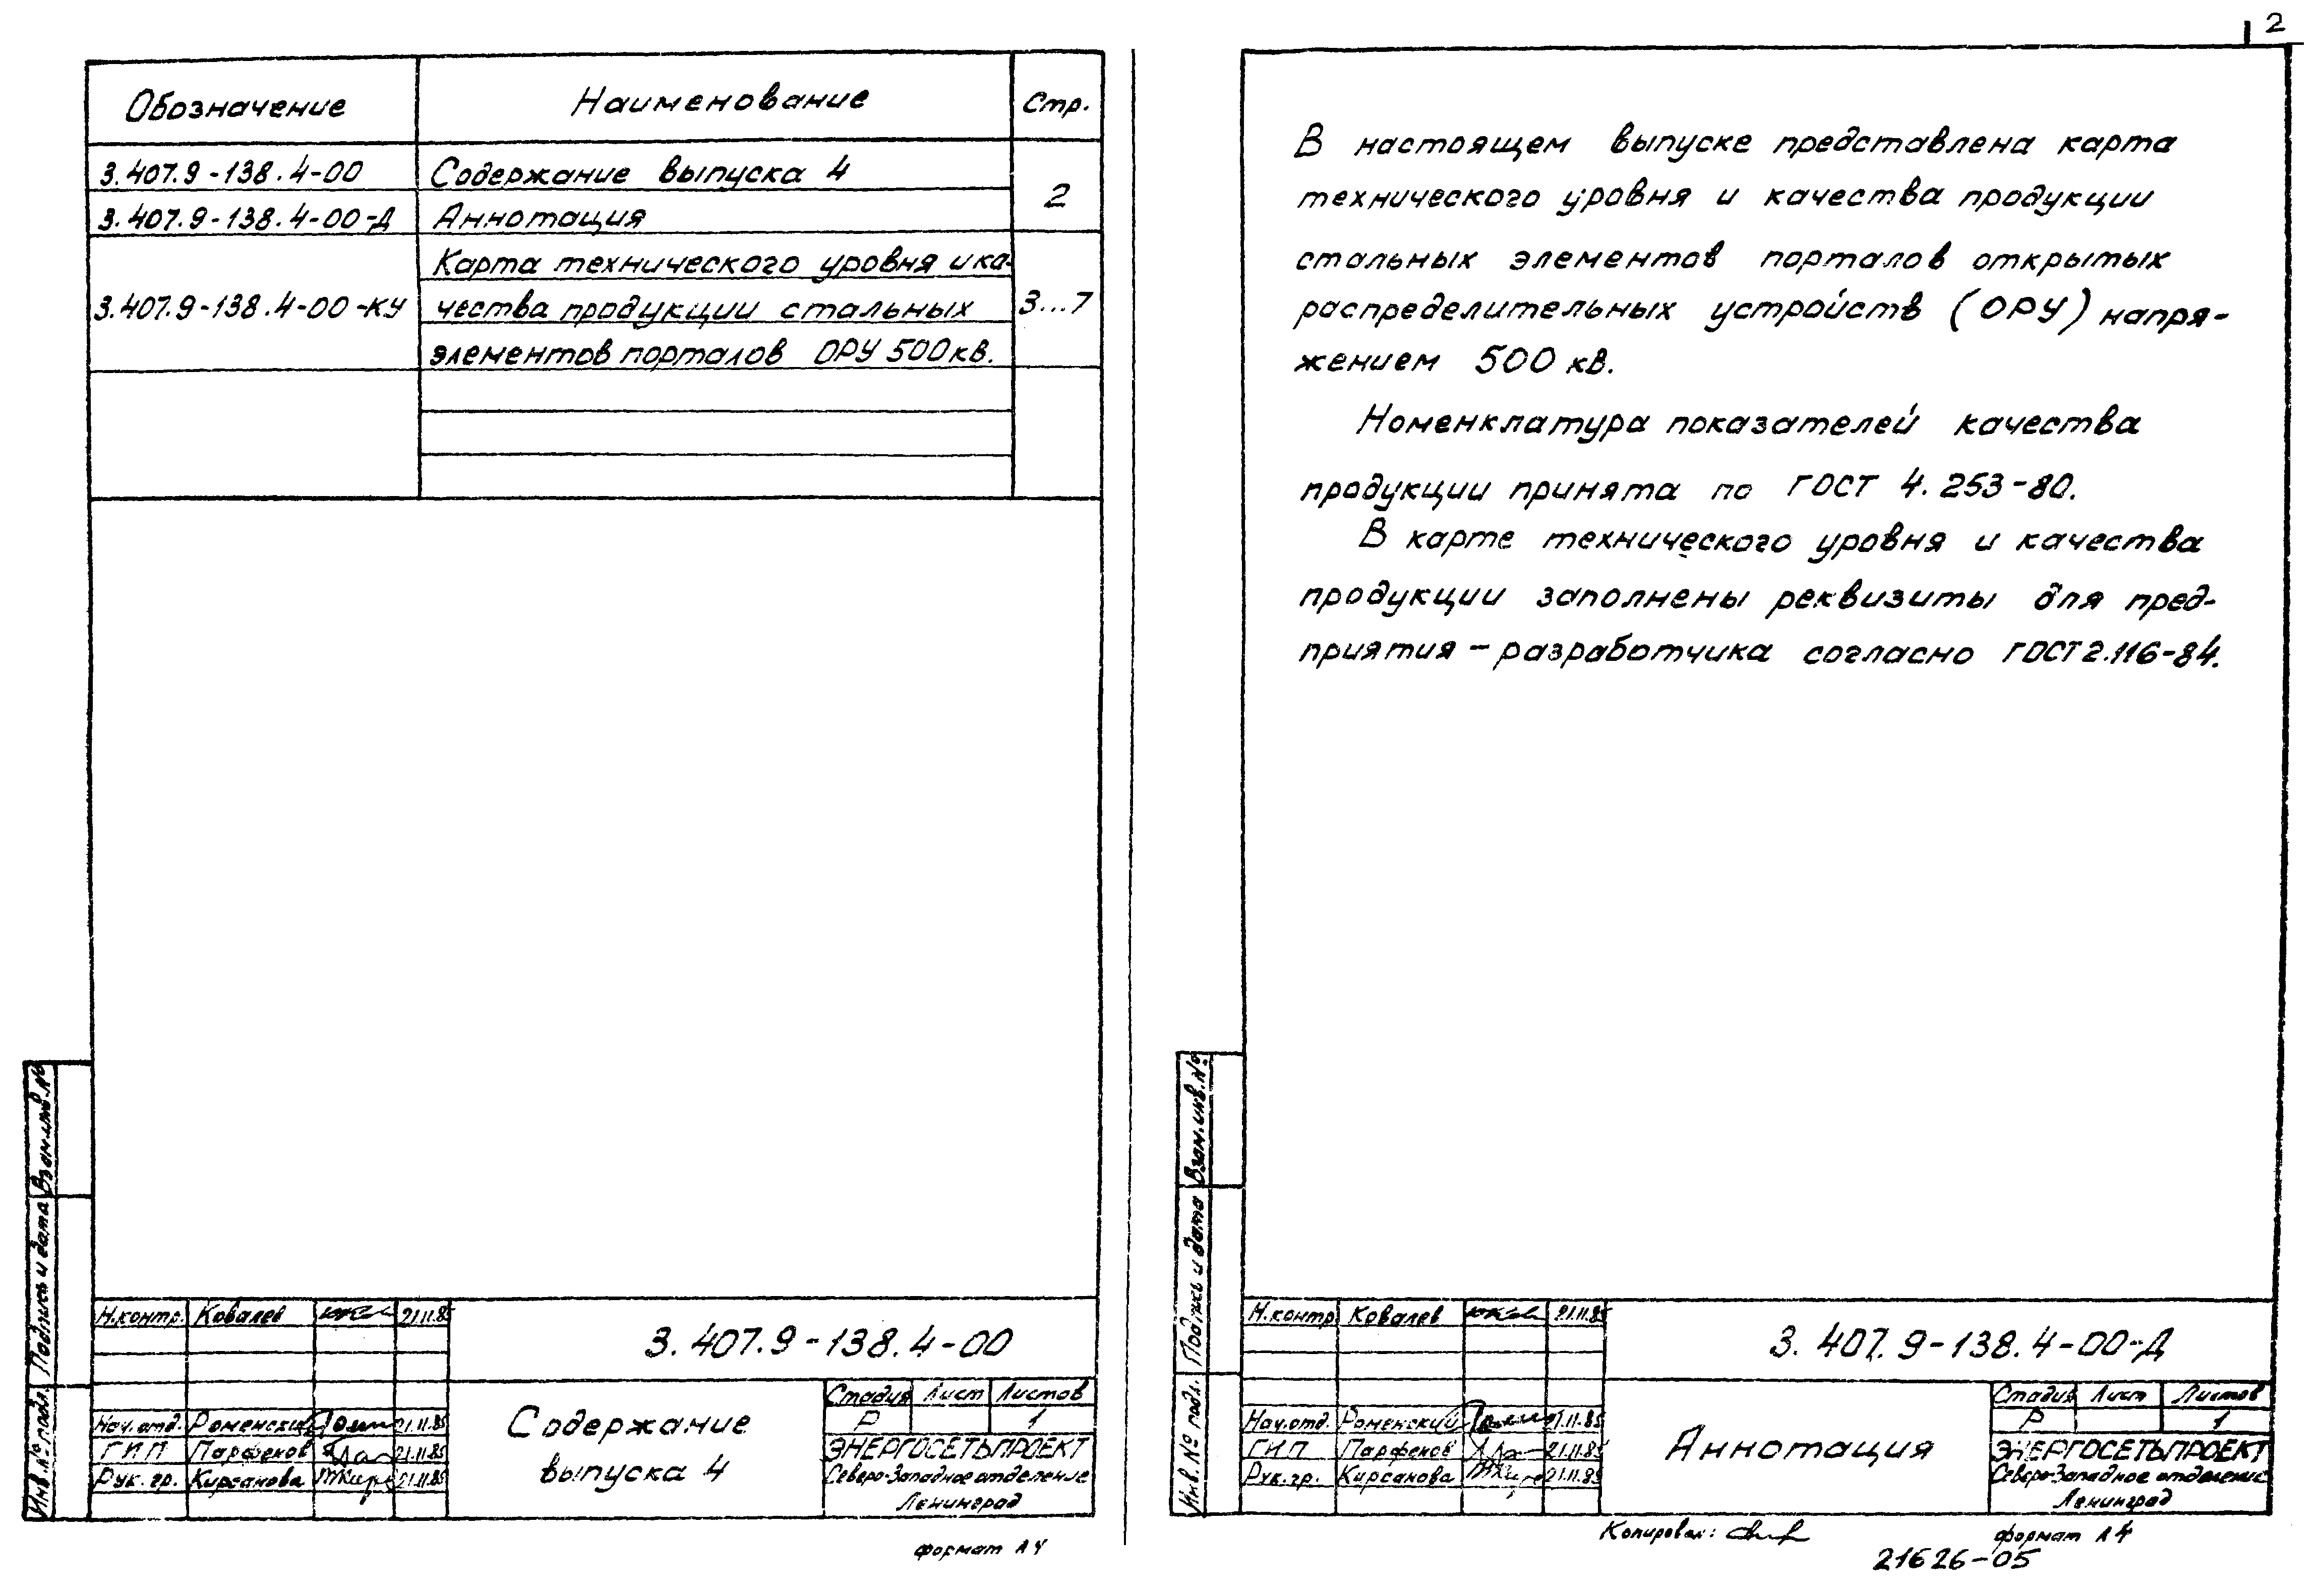 2
Обозначение Наименование Стр.
3.407.9-138.4-00 Содержание выпуска 4 2
3.407.9-138.4-00-Д Аннотация
Карта технического уровня и ка-
3.407.9-138.4-00-КУ чества продукции стальных 3...7
элементов порталов ОРУ 500 кв.
Взам.инв.№
Подпись и дата
Инв.№ подл.
Н.контр. Ковалев 21.11.85
3.407.9-138.4-00
Нач.отд. Роменский 21.11.85
ГИП Парфенов 21.11.85
Рук.гр. Кирсанова 21.11.85
Содержание
выпуска 4
Стадия Лист Листов
Р 1
ЭНЕРГОСЕТЬПРОЕКТ
Северо-Западное отделение
Ленинград
формат А4
В настоящем выпуске представлена карта
технического уровня и качества продукции
стальных элементов порталов открытых
распределительных устройств (ОРУ) напря-
жением 500 кв.
Номенклатура показателей качества
продукции принята по ГОСТ 4.253-80.
В карте технического уровня и качества
продукции заполнены реквизиты для пред-
приятия-разработчика согласно ГОСТ 2.116-84.
Взам.инв.№
Подпись и дата
Инв.№ подл.
Н.контр Ковалев 21.11.85
3.407.9-138.4-00-Д
Нач.отд. Роменский 21.11.85
ГИП Парфенов 21.11.85
Рук.гр. Кирсанова 21.11.85
Аннотация
Стадия Лист Листов
Р 1
ЭНЕРГОСЕТЬПРОЕКТ
Северо-Западное отделение
Ленинград
Копировал: формат А4
21626-05